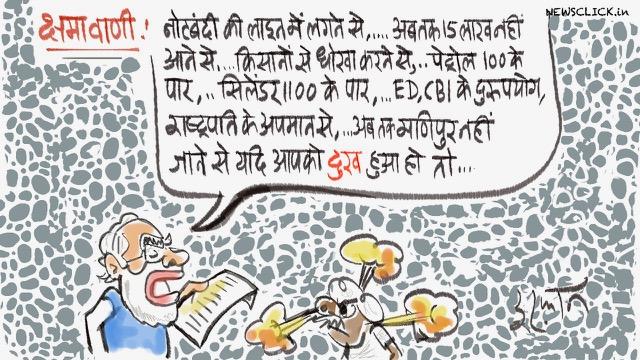 NEWSCLICK.in
क्षमावाणी!
नोटबंदी की लाइन में लगने से,.... अब तक 15 लाख नहीं
आने से.... किसानों से धोखा करने से,.. पेट्रोल 100 के
पार,.. सिलेंडर 1100 के पार,... ED, CBI के दुरुपयोग,
राष्ट्रपति के अपमान से,... अब तक मणिपुर नहीं
जाने से यदि आपको दुख हुआ हो तो...
इरफान